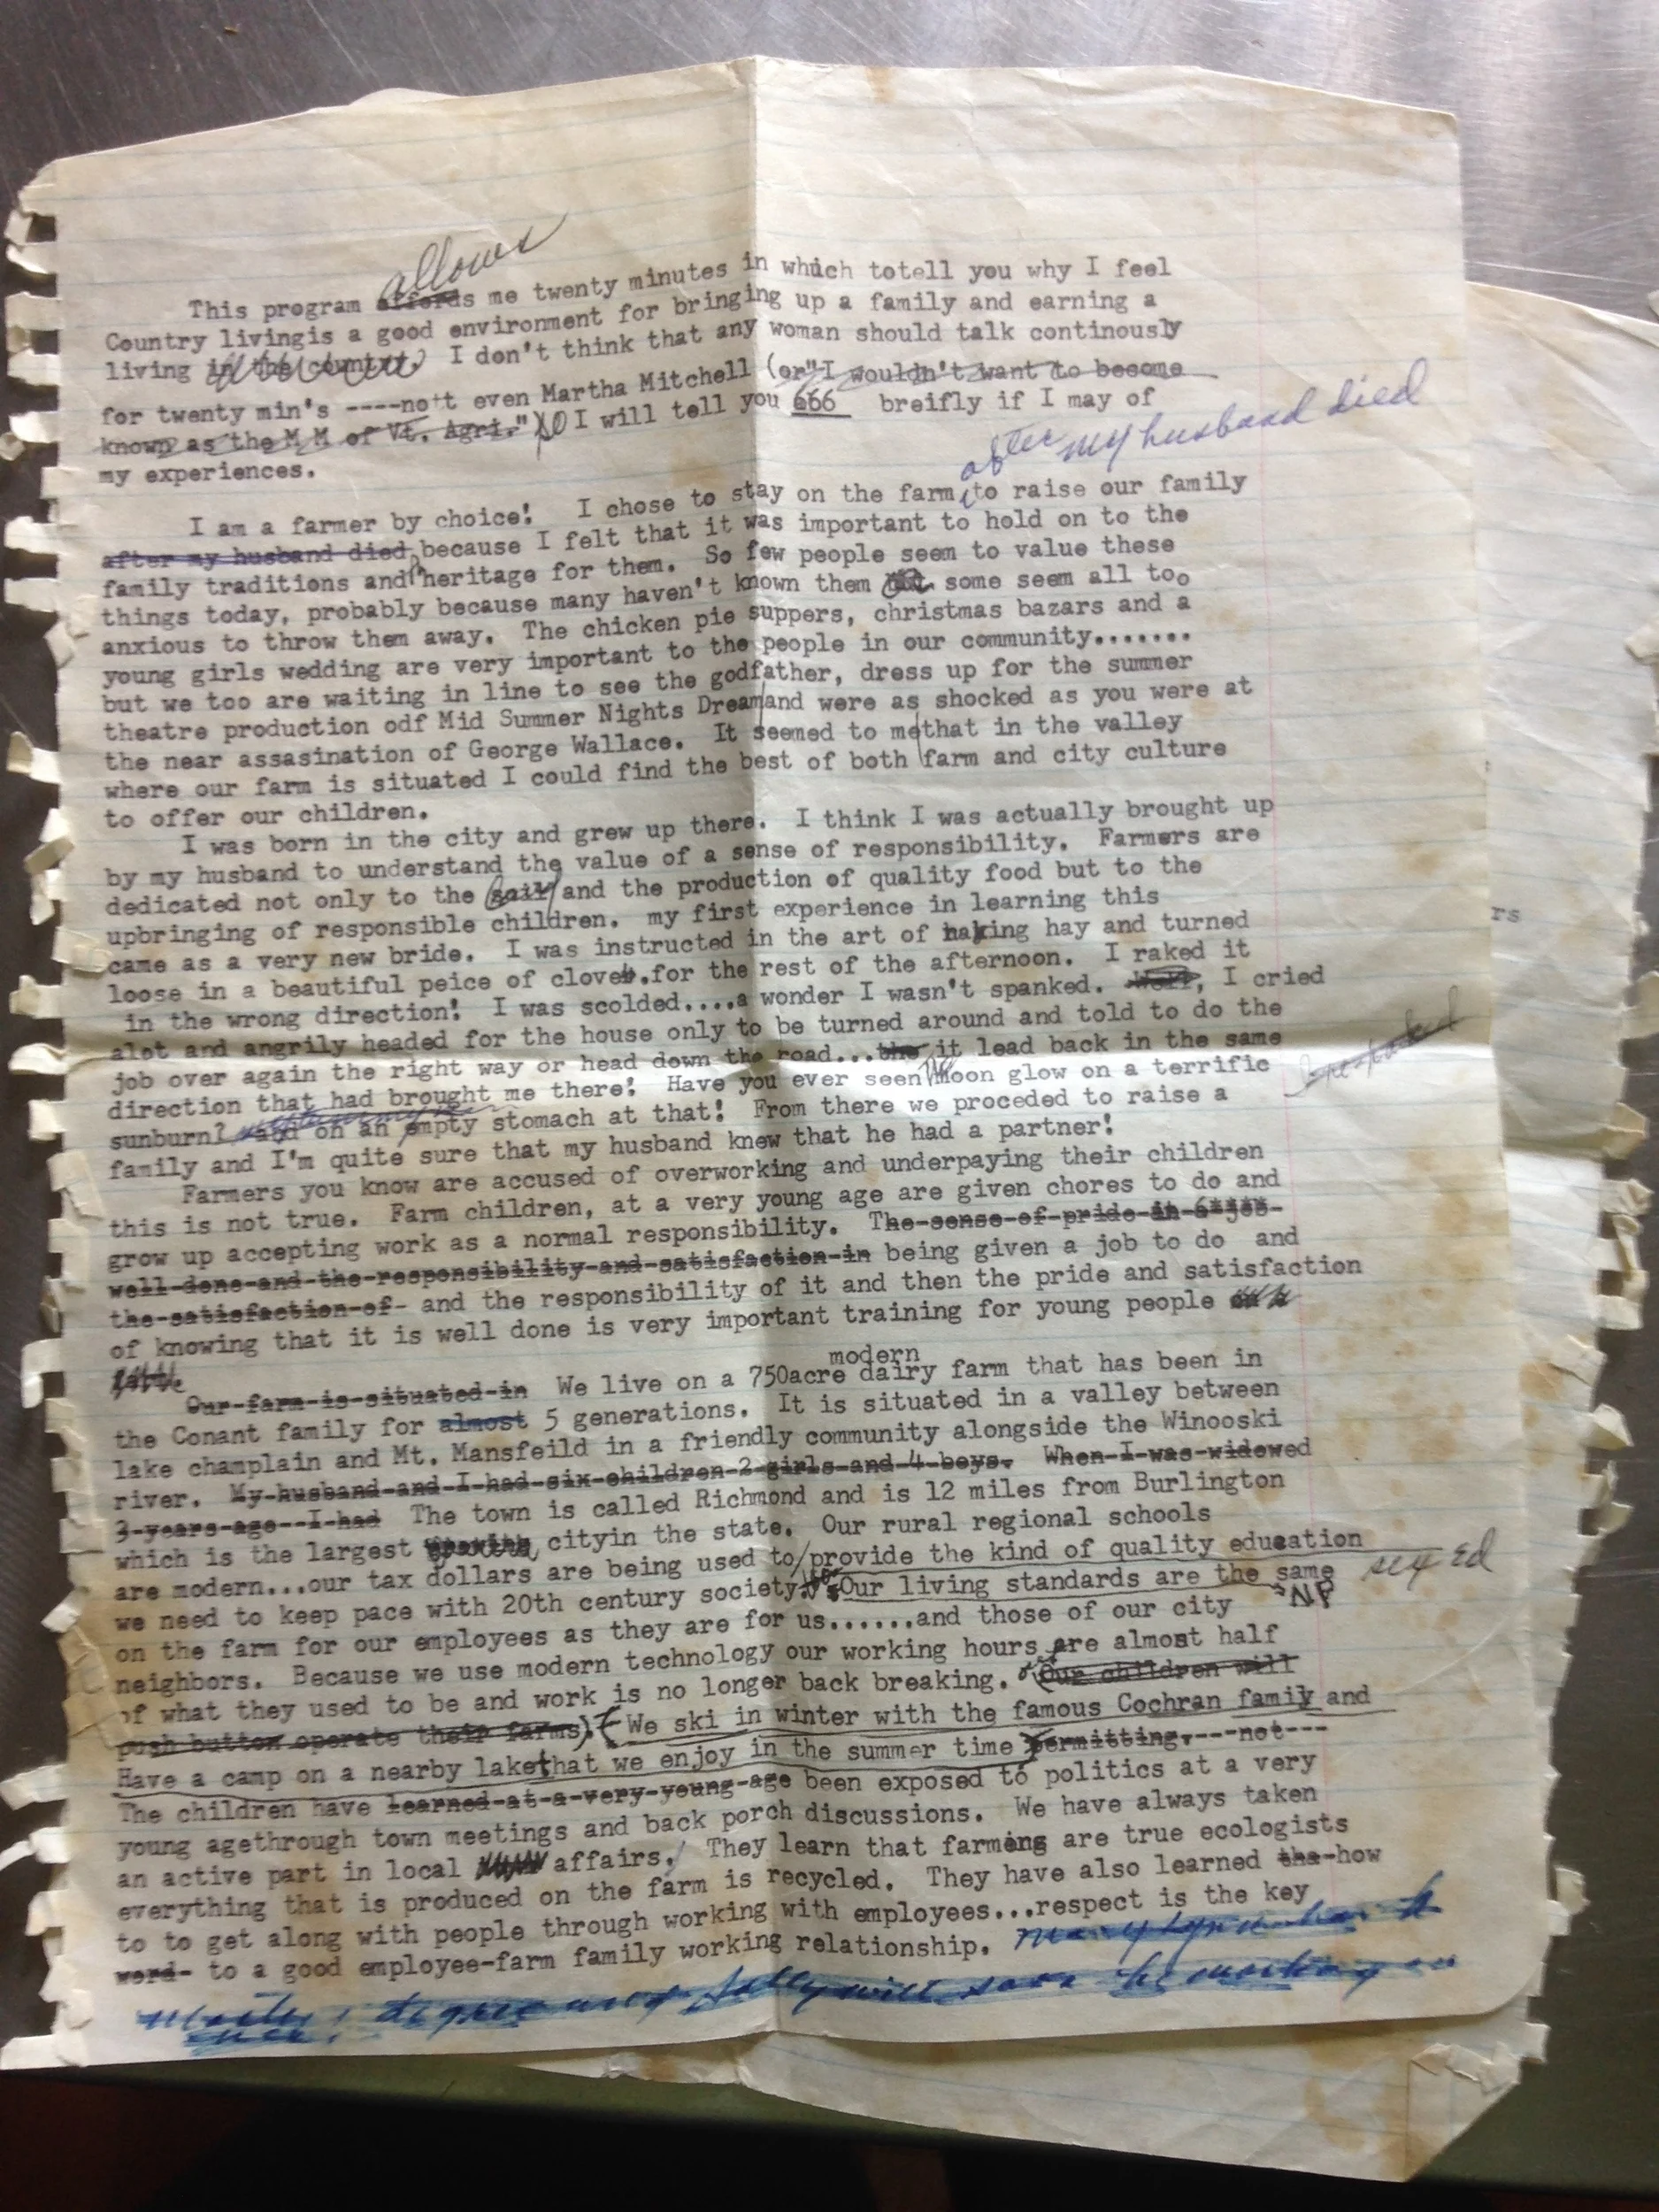 allows
This program affords me twenty minutes in which totell you why I feel
Country livingis a good environment for bringing up a family and earning a
living in the country. I don't think that any woman should talk continously
for twenty min's ----no't even Martha Mitchell (or"I wouldn't want to become
known as the M M of Vt. Agri.") SO I will tell you 666 breifly if I may of
my experiences.
after my husband died
I am a farmer by choice! I chose to stay on the farm to raise our family
after my husband died because I felt that it was important to hold on to the
family traditions and heritage for them. So few people seem to value these
things today, probably because many haven't known them some seem all too
anxious to throw them away. The chicken pie suppers, christmas bazars and a
young girls wedding are very important to the people in our community.......
but we too are waiting in line to see the godfather, dress up for the summer
theatre production odf Mid Summer Nights Dream and were as shocked as you were at
the near assasination of George Wallace. It seemed to me that in the valley
where our farm is situated I could find the best of both farm and city culture
to offer our children.
I was born in the city and grew up there. I think I was actually brought up
by my husband to understand the value of a sense of responsibility. Farmers are
dedicated not only to the soil and the production of quality food but to the
upbringing of responsible children. my first experience in learning this
came as a very new bride. I was instructed in the art of raking hay and turned
loose in a beautiful peice of clover.for the rest of the afternoon. I raked it
in the wrong direction! I was scolded....a wonder I wasn't spanked. Well, I cried
alot and angrily headed for the house only to be turned around and told to do the
job over again the right way or head down the road...the it lead back in the same
direction that had brought me there! Have you ever seen the moon glow on a terrific
sunburn? and on an empty stomach at that! From there we proceded to raise a
family and I'm quite sure that my husband knew that he had a partner!
Farmers you know are accused of overworking and underpaying their children
this is not true. Farm children, at a very young age are given chores to do and
grow up accepting work as a normal responsibility. The sense of pride in a job
well done and the responsibility and satisfaction in being given a job to do and
the satisfaction of- and the responsibility of it and then the pride and satisfaction
of knowing that it is well done is very important training for young people
modern
Our farm is situated in We live on a 750acre dairy farm that has been in
the Conant family for almost 5 generations. It is situated in a valley between
lake champlain and Mt. Mansfeild in a friendly community alongside the Winooski
river. My husband and I had six children 2 girls and 4 boys. When I was widowed
3 years ago--I had The town is called Richmond and is 12 miles from Burlington
which is the largest cityin the state. Our rural regional schools
are modern...our tax dollars are being used to provide the kind of quality education
sex ed
we need to keep pace with 20th century society. Our living standards are the same
NP
on the farm for our employees as they are for us......and those of our city
neighbors. Because we use modern technology our working hours are almost half
of what they used to be and work is no longer back breaking. (Our children will
push button operate their farms). We ski in winter with the famous Cochran family and
Have a camp on a nearby lake that we enjoy in the summer time permitting,---not---
The children have learned at a very young age been exposed to politics at a very
young agethrough town meetings and back porch discussions. We have always taken
an active part in local affairs. They learn that farming are true ecologists
everything that is produced on the farm is recycled. They have also learned the how
to to get along with people through working with employees...respect is the key
word- to a good employee-farm family working relationship.
rs